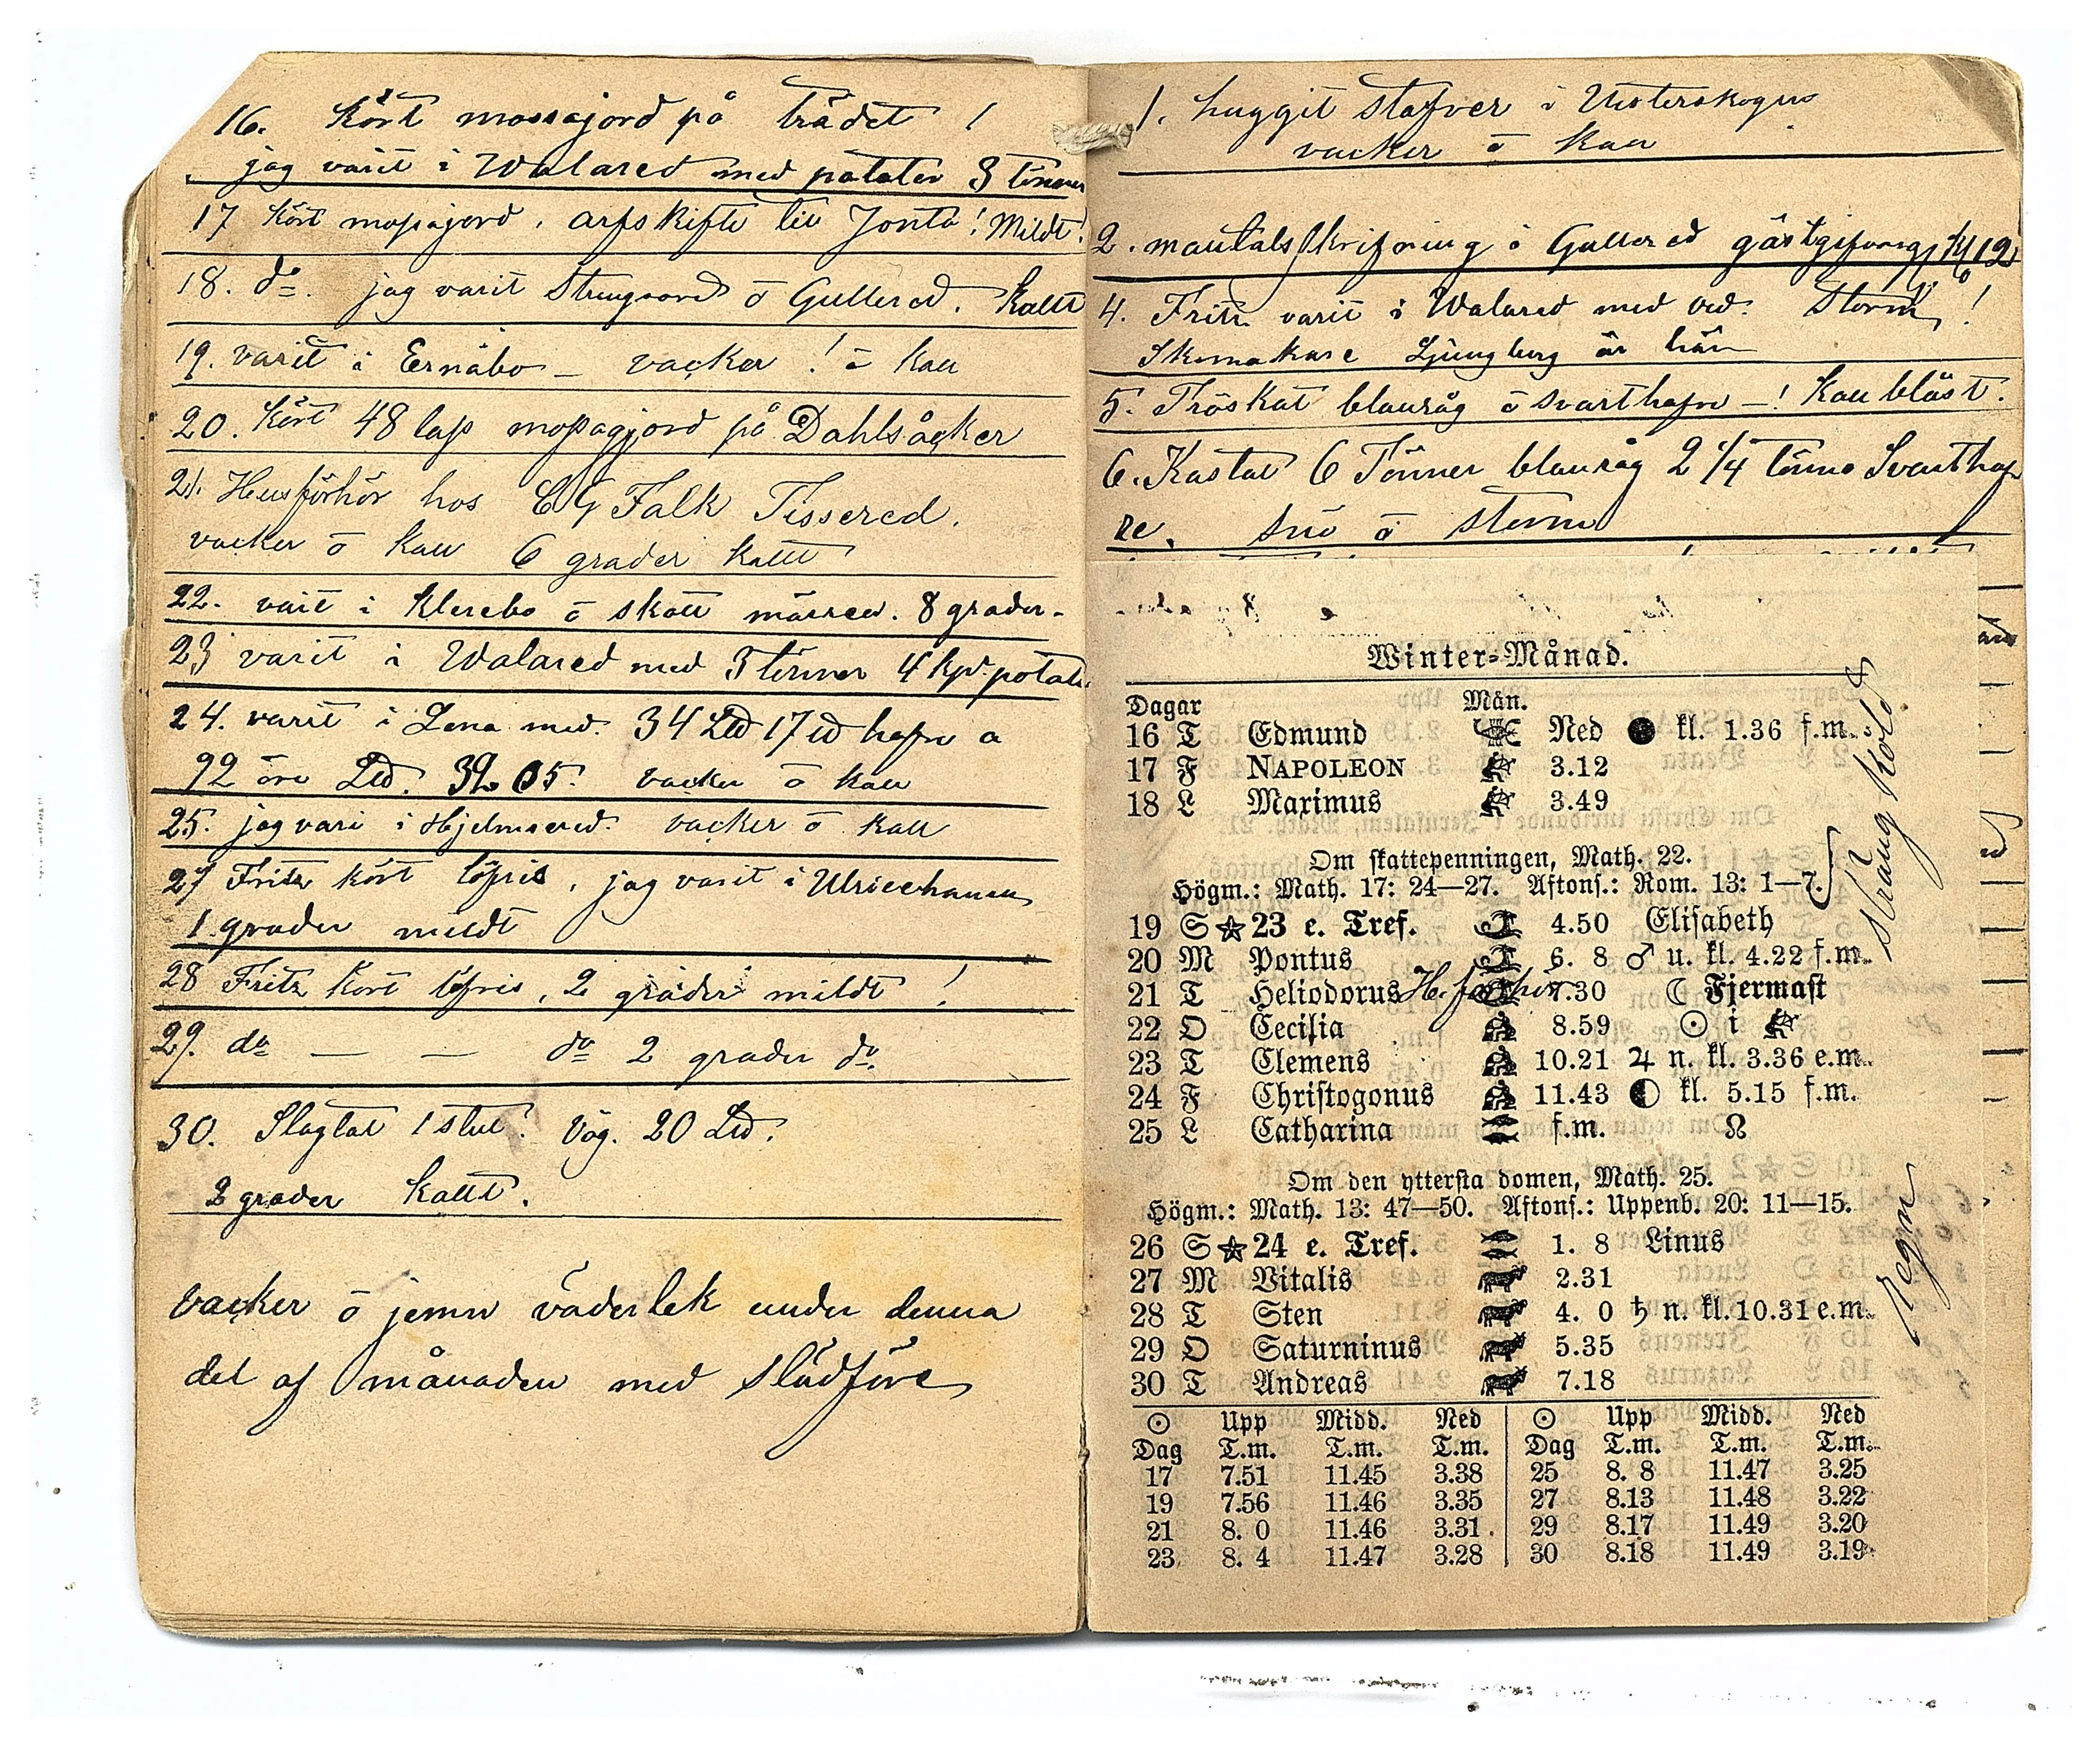 16. Kört mossajord på trädet !
jag varit i Walared med pätater 3 tönner
17 Kört mossajord, arfskifte till Jonta! Mildt!
18. do. jag varit Strugsared ö Gullered. Kallt
19. varit i Ernäbo – vacker ! ö kall
20. Kört 48 lass mossagjord på Dahlsåcker
21. Husförhör hos CG Falk Tissered.
vacker ö kall 6 grader kallt
22. varit i Klerebo ö skall märred. 8 grader.
23 varit i Walared med 3 tönner 4 kpr. potat
24. varit i Lena med. 34 Lld 17 ld hafre a
92 öre Lld. 32.05. vacker ö kall
25. jag vari i Hjelmsered. vacker ö kall
27 Fritz kört löfris, jag varit i Ulricehamn
1 grader mildt
28 Fritz kört löfris, 2 grader mildt !
29. do — — do 2 grader do.
30. Slagtat 1 stut. Vög. 20 Lld.
2 grader kallt.
vacker ö jemn väderlek under denna
del af månaden med slädföre
1. huggit stafver i Westerskogen
vacker ö kall
2. mantalsskrifning i Gullered gästgifvareg. kl 12
4. Fritz varit i Walared med ved. Storm !
Skomakare Ljungberg är här
5. Tröskat blauråg ö svarthafre –! Kall bläst.
6. Kastat 6 Tönner blauråg 2 1/4 tönne Svarthaf
re. snö ö storm
Winter-Månad.
Dagar Mån.
16 T Edmund Ned ● kl. 1.36 f.m.
17 F NAPOLEON 3.12
18 L Maximus 3.49
sträng köld
Om skattepenningen, Math. 22.
Högm.: Math. 17: 24—27. Aftons.: Rom. 13: 1—7.
19 S ☆ 23 e. Tref. 4.50 Elisabeth
20 M Pontus 6. 8 ♂ u. kl. 4.22 f.m.
21 T Heliodorus H. förhör 7.30 ☾ Fjermast
22 O Cecilia 8.59 ☉ i ♐
23 T Clemens 10.21 ♃ n. kl. 3.36 e.m.
24 F Christogonus 11.43 ◐ kl. 5.15 f.m.
25 L Catharina f.m. ☊
Om den yttersta domen, Math. 25.
Högm.: Math. 13: 47—50. Aftons.: Uppenb. 20: 11—15.
26 S ☆ 24 e. Tref. 1. 8 Linus
27 M Vitalis 2.31
28 T Sten 4. 0 ♄ n. kl. 10.31 e.m.
29 O Saturninus 5.35
30 T Andreas 7.18
regn
☉ Upp Midd. Ned ☉ Upp Midd. Ned
Dag T.m. T.m. T.m. Dag T.m. T.m. T.m.
17 7.51 11.45 3.38 25 8. 8 11.47 3.25
19 7.56 11.46 3.35 27 8.13 11.48 3.22
21 8. 0 11.46 3.31 29 8.17 11.49 3.20
23 8. 4 11.47 3.28 30 8.18 11.49 3.19